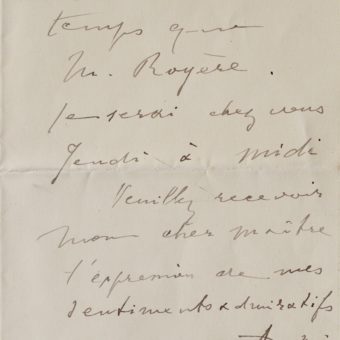 temps que
M. Royère.
je serai chez vous
Jeudi à midi
Veuillez recevoir
mon cher maître
l'expression de mes
sentiments admiratifs